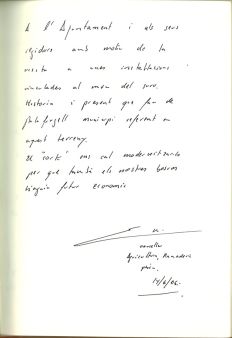 A l'Ajuntament i als seus
regidors amb motiu de la
visita a unes instal·lacions
vinculades al món del suro.
Història i present que fan de
Palafrugell municipi referent en
aquest terreny.
El "sorté" ens cal modernitzar-lo
per què també els nostres boscos
tinguin futur econòmic
Conseller
Agricultura, Ramaderia
Pesca.
14/6/06.